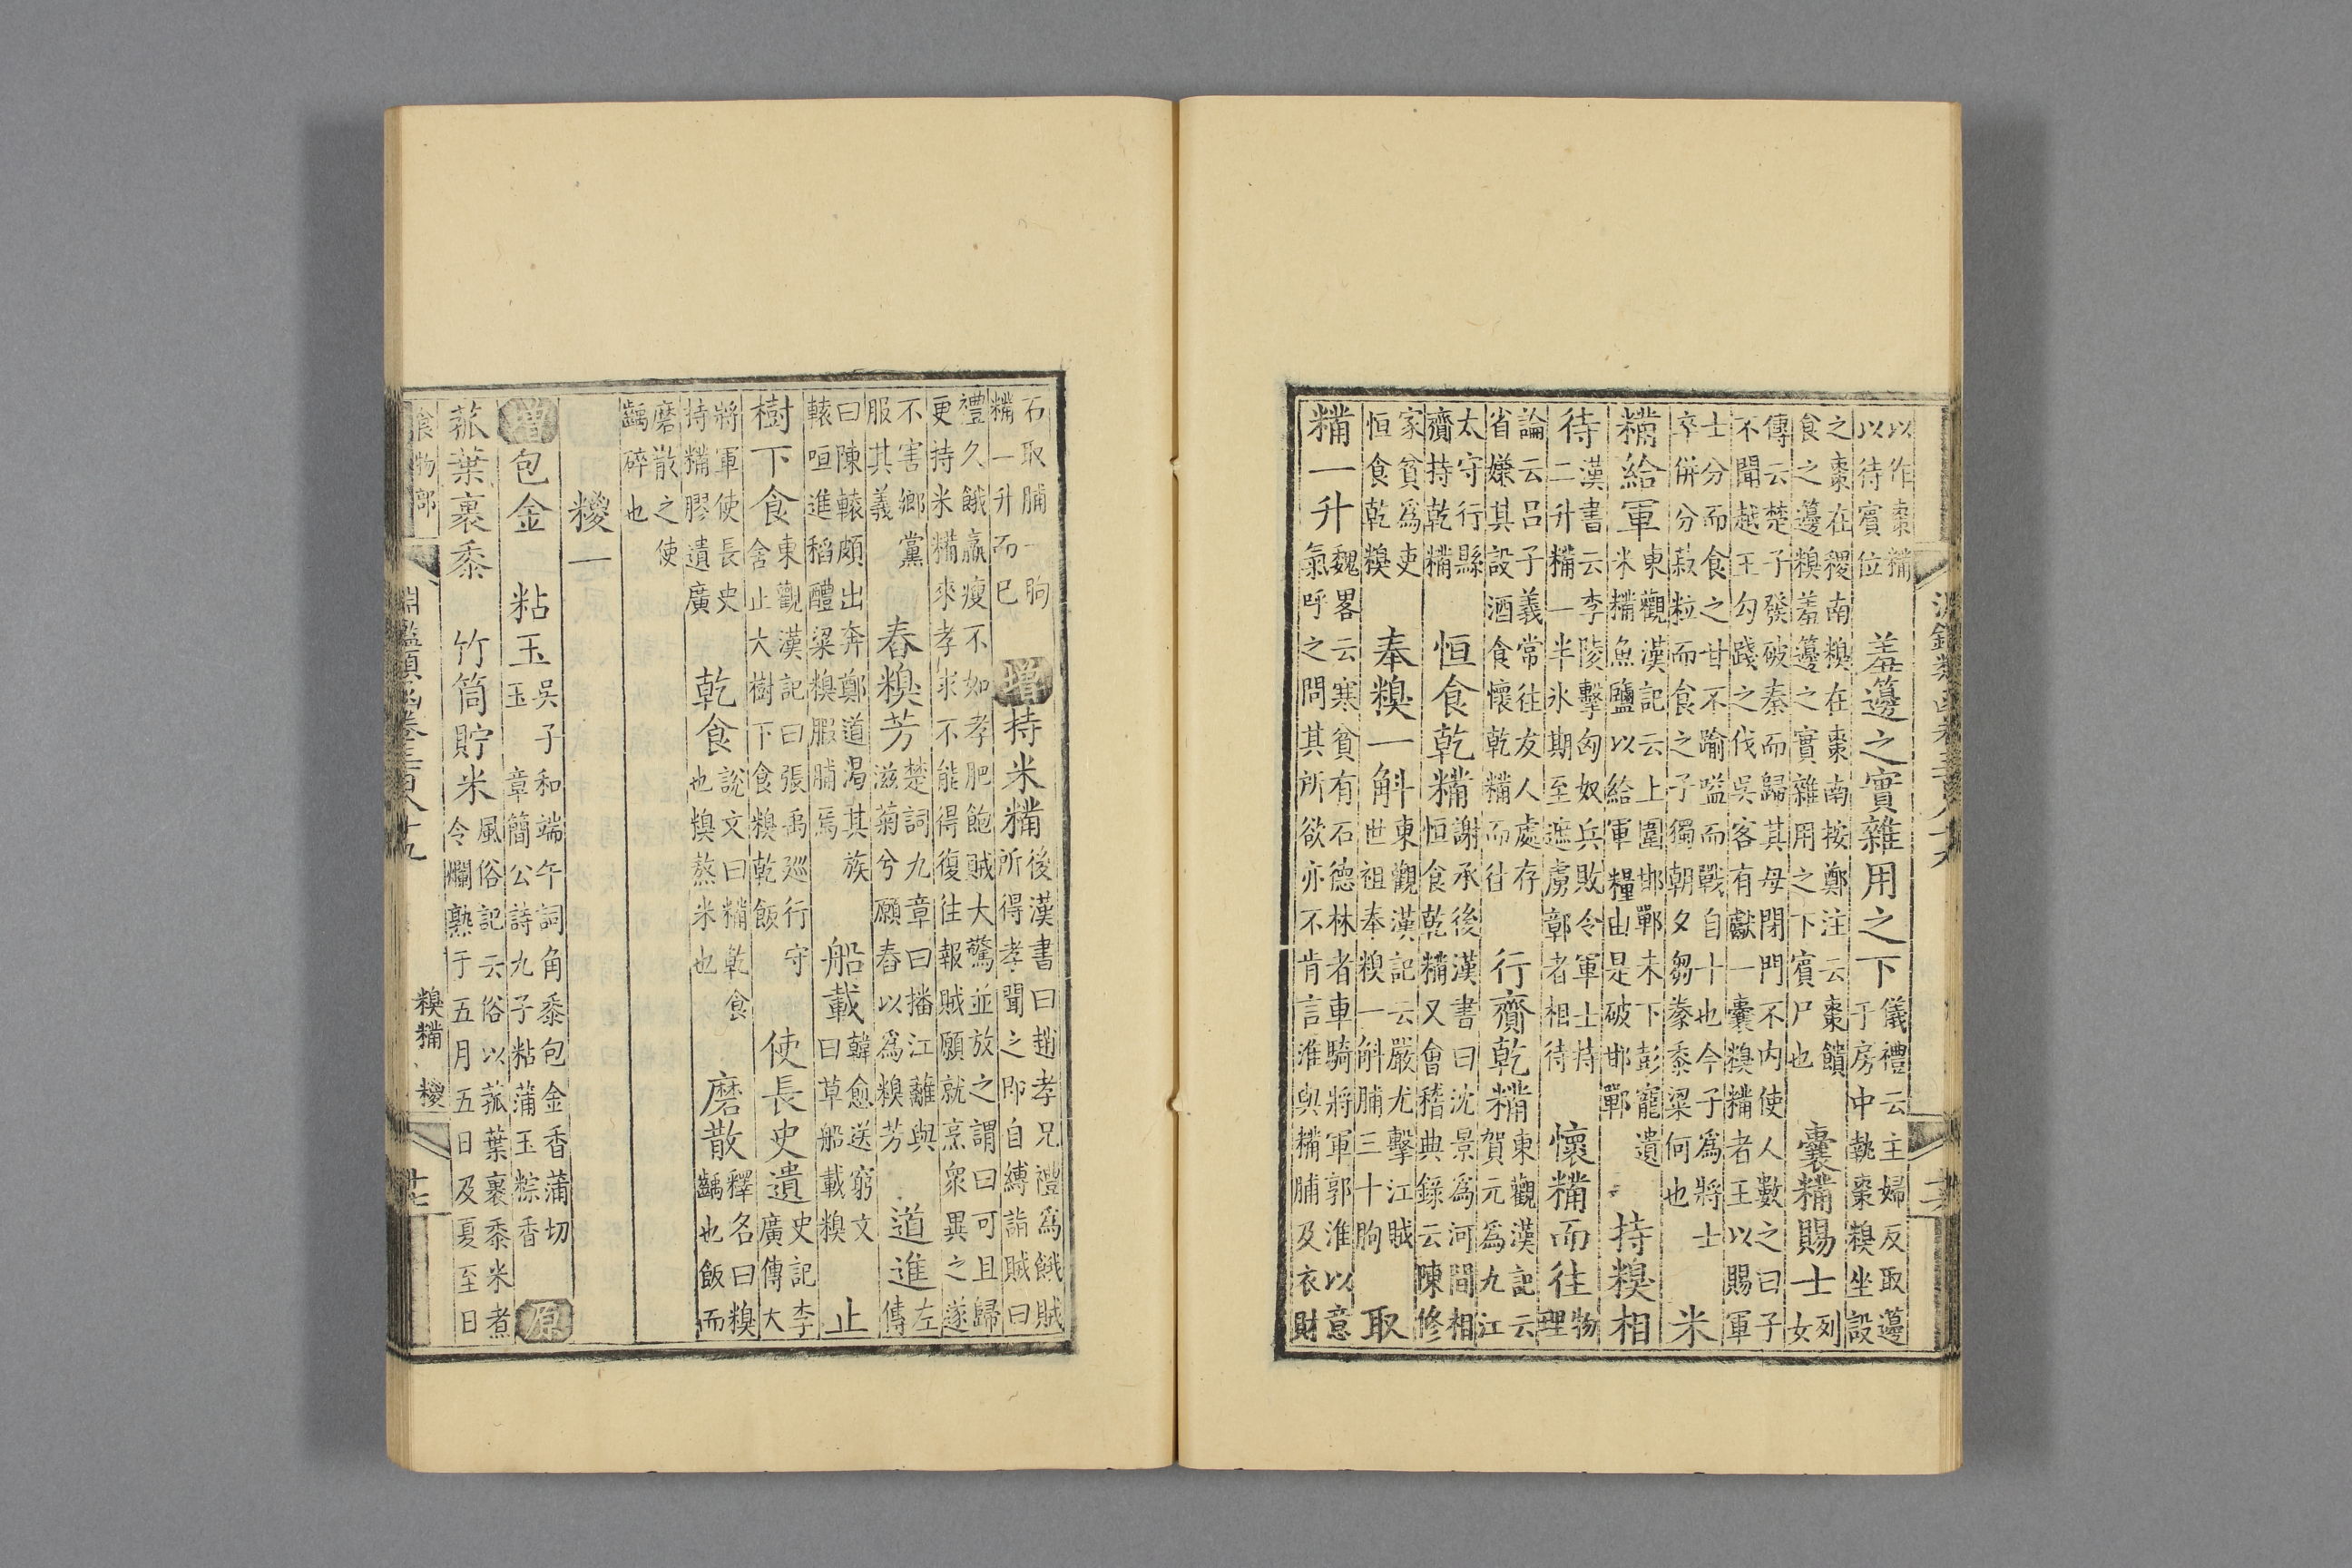 以作棗糒
以待賓位
羞籩之實雜用之下
儀禮云主婦反取籩
于房中執棗糗坐設
之棗在稷南糗在棗南按鄭注云棗饋
食之籩糗羞籩之實雜用之下賓尸也
囊糒賜士
列
女
傳云楚子發破秦而歸其母閉門不內使人數之曰子
不聞越王勾踐之伐吳客有獻一囊糗糒者王以賜軍
士分而食之甘不踰嗌而戰自十也今子爲將士
卒併分菽粒而食之子獨朝夕芻豢黍粱何也
米
糒給軍
東觀漢記云上圍邯鄲未下彭寵遺
米糒魚鹽以給軍糧由是破邯鄲
持糗相
待
漢書云李陵擊匈奴兵敗令軍士持
二升糒一半氷期至遮虜鄣者相待
懷糒而往
物
理
論云呂子義常往友人處存
省嫌其設酒食懷乾糒而往
行齎乾糒
東觀漢記云
賀元爲九江
太守行縣
齎持乾糒
恒食乾糒
謝承後漢書曰沈景爲河間相
恒食乾糒又會稽典錄云陳修
家貧爲吏
恒食乾糗
奉糗一斛
東觀漢記云嚴尤擊江賊
世祖奉糗一斛脯三十朐
取
糒一升
魏畧云寒貧有石德林者車騎將軍郭淮以意
氣呼之問其所欲亦不肯言淮與糒脯及衣財
石取脯一朐
糒一升而已
增
持米糒
後漢書曰趙孝兄禮爲餓賊
所得孝聞之即自縛詣賊曰
禮久餓羸瘦不如孝肥飽賊大驚並放之謂曰可且歸
更持米糒來孝求不能得復往報賊願就烹衆異之遂
不害鄉黨
服其義
舂糗芳
楚詞九章曰播江蘺與
滋菊兮願舂以爲糗芳
道進
左
傳
曰陳轅頗出奔鄭道渴其族
轅咺進稻醴粱糗服脯焉
船載
韓愈送窮文
曰草船載糗
止
樹下食
東觀漢記曰張禹巡行守
舍止大樹下食糗乾飯
使長史遺
史記李
廣傳大
將軍使長史
持糒膠遺廣
乾食
說文曰糒乾食
也糗熬米也
磨散
釋名曰糗
齲也飯而
磨散之使
齲碎也
糉一
增
包金
粘玉
吳子和端午詞角黍包金香蒲切
玉 章簡公詩九子粘蒲玉粽香
原
菰葉裹黍
竹筒貯米
風俗記云俗以菰葉裹黍米煮
令爛熟于五月五日及夏至日
食物部
淵鑑類函卷三百八十九
糗糒 糉